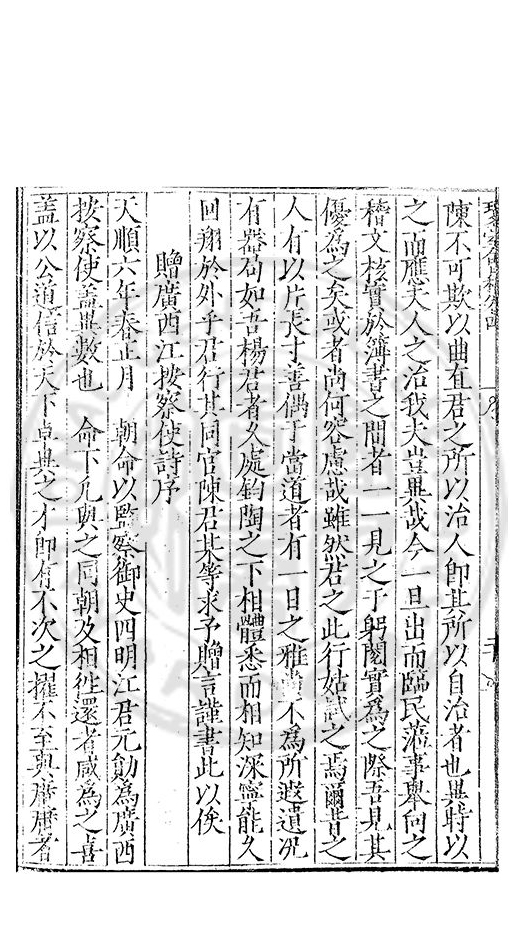 陳不可欺以曲直君之所以治人即其所以自治者也異時以
之而應夫人之治我夫豈異哉今一旦出而臨民蒞事舉向之
稽文核實於簿書之間者一一見之于躬閱實為之際吾見其
優為之矣或者尚何容慮哉雖然君之此行姑試之焉爾昔之
人有以片長寸善偶于當道者有一日之雅尚不為所遐遺况
有器局如吾楊君者久處鈞陶之下相體悉而相知深寧能久
回翔於外乎君行其同官陳君某等求予贈言謹書此以俟
贈廣西江按察使詩序
天順六年春正月 朝命以監察御史四明江君元勛為廣西
按察使盖異數也 命下凡與之同朝及相徃還者咸為之喜
盖以公道信於天下卓異之才即有不次之擢不至與庸庸者